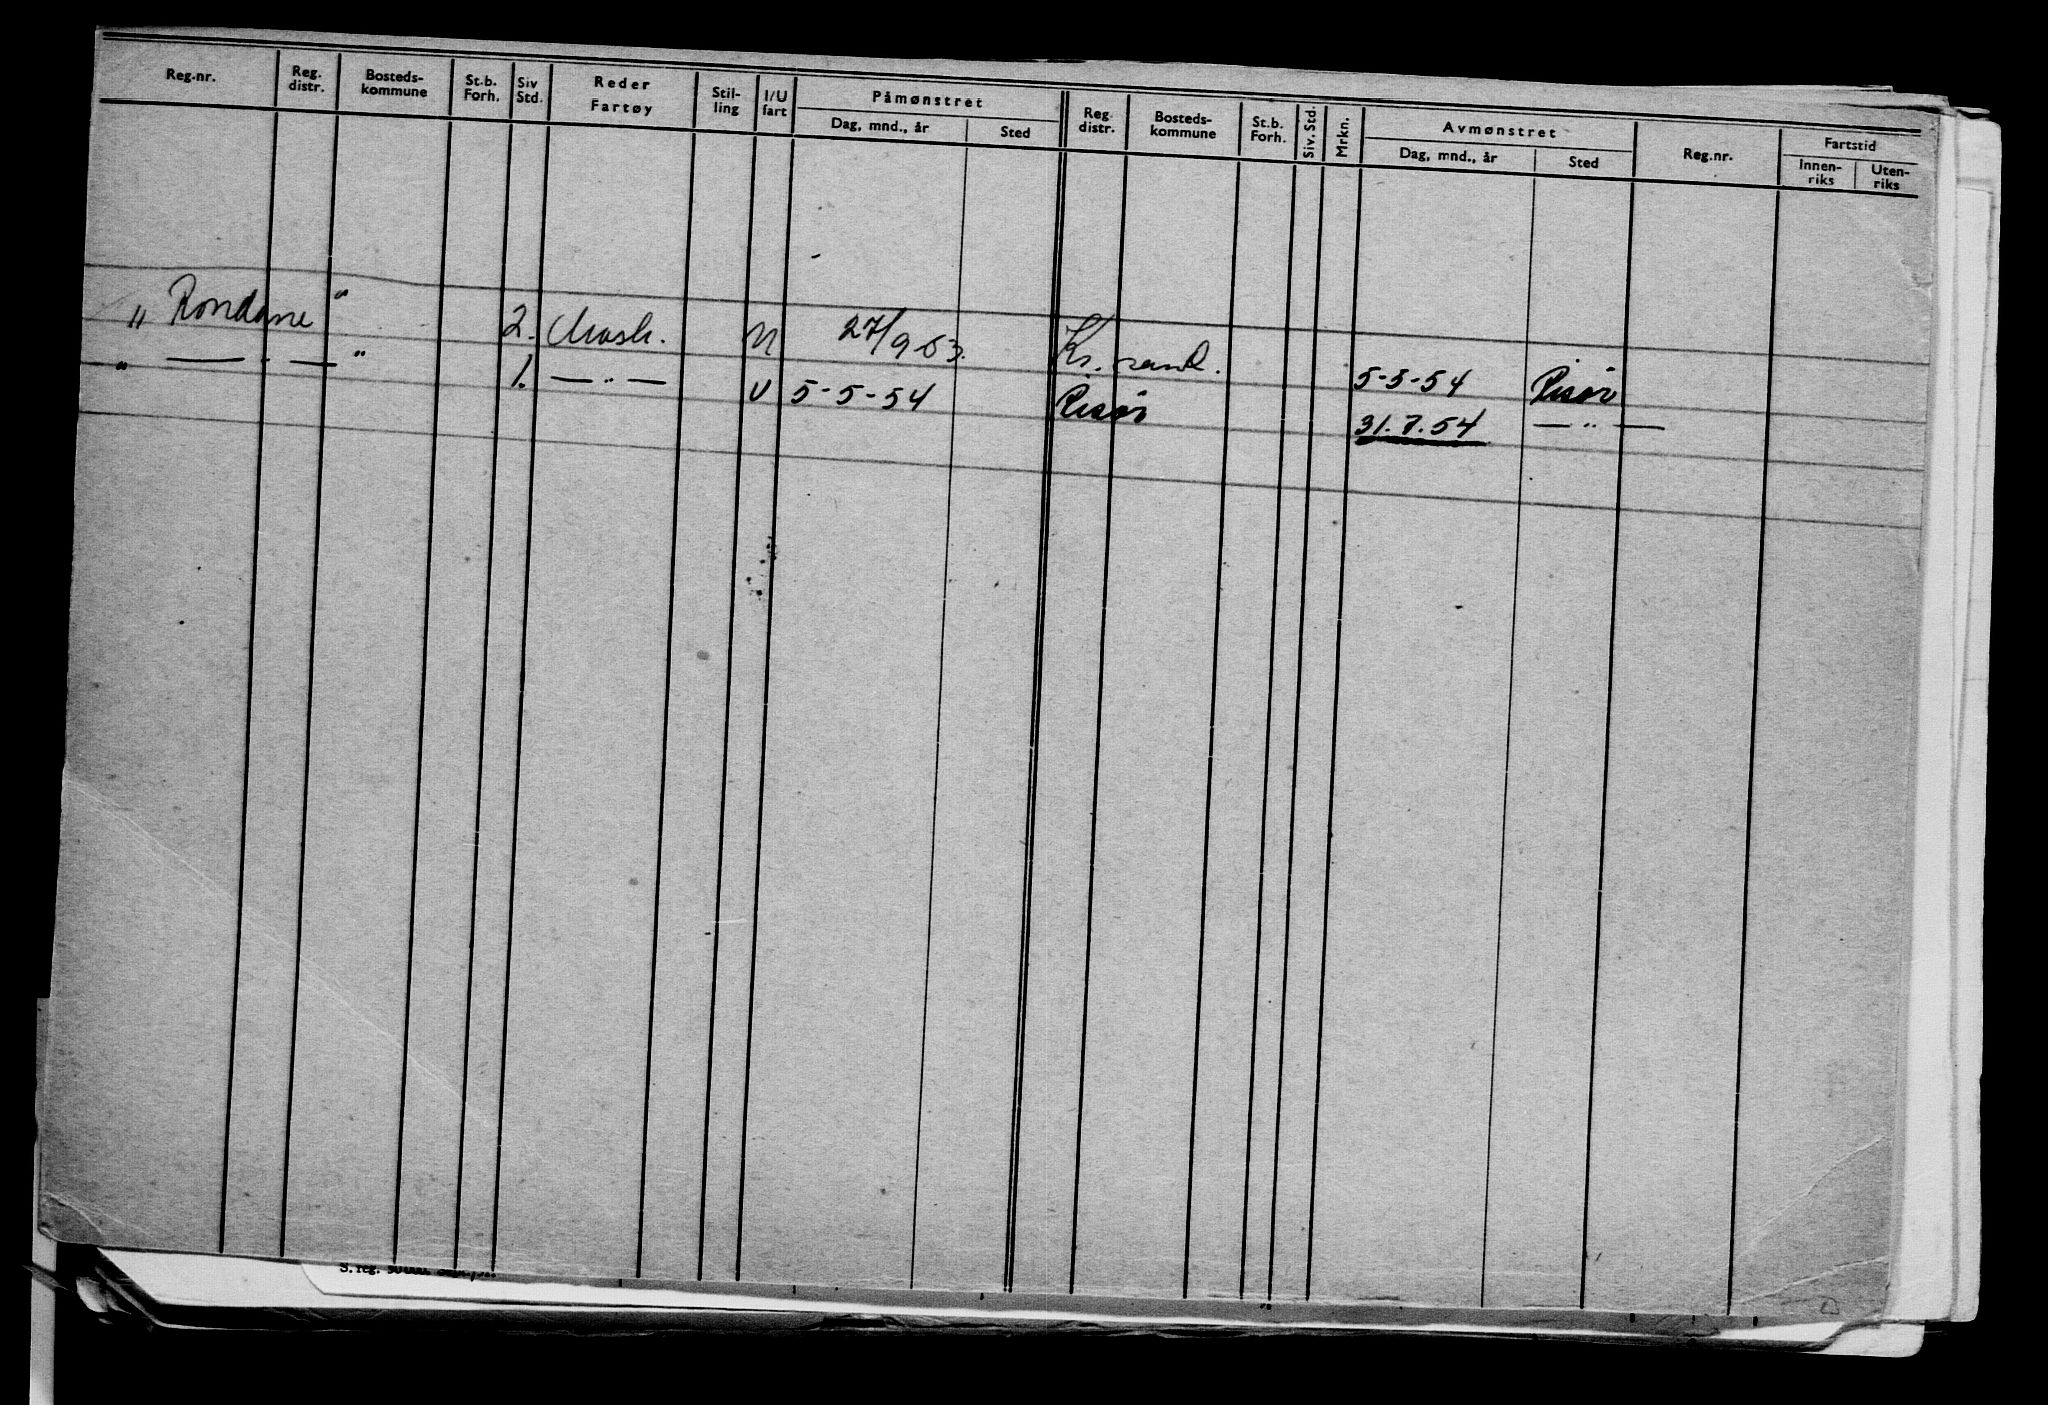 Reg.nr. Reg. distr. Bosteds-kommune St.b. Forh. Siv Std. Reder Fartøy Stil-ling I/U fart Påmønstret Dag, mnd., år Sted Reg. distr. Bosteds-kommune St.b. Forh. Siv. Std. Mrkn. Avmønstret Dag, mnd., år Sted Reg.nr. Fartstid Innen-riks Uten-riks
„ Rondane “ 2. Mask. U 27/9-53. Kr.sand. 5-5-54 Risør
„ — . — “ 1. — „ — U 5-5-54 Risør 31.7.54 — „ —
S. reg.